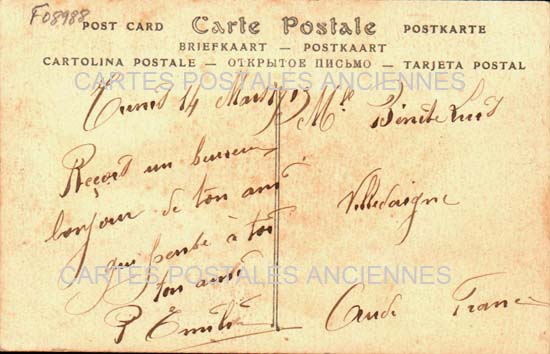 F08988
POST CARD Carte Postale POSTKARTE
BRIEFKAART — POSTKAART
CARTOLINA POSTALE — ОТКРЫТОЕ ПИСЬМО — TARJETA POSTAL
CARTES POSTALES ANCIENNES
Tunis 14 Mars
Reçois un
bonjour de ton ami
qui pense à toi
ton ami
Emile
Mlle Bénite
Villedaigne
Aude France
CARTES POSTALES ANCIENNES